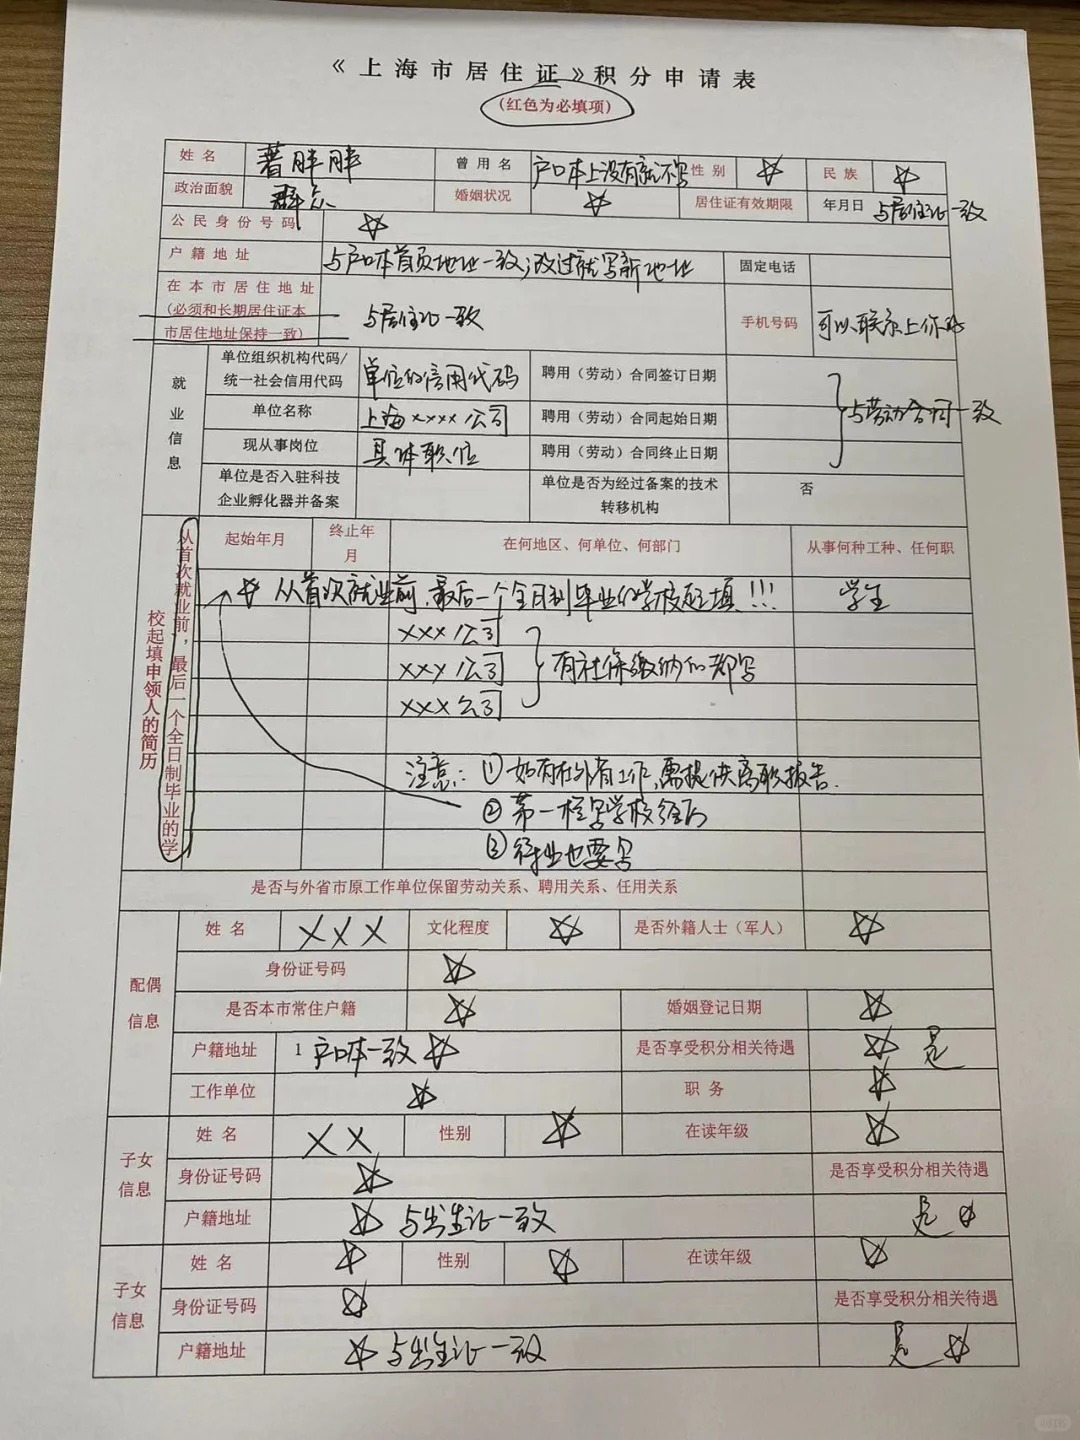 《上海市居住证》积分申请表
(红色为必填项)
姓名 薯胖胖 曾用名 户口本上没有就不写 性别 ☆ 民族 ☆
政治面貌 群众 婚姻状况 ☆ 居住证有效期限 年月日 与居住证一致
公民身份号码 ☆
户籍地址 与户口本首页地址一致;改过就写新地址 固定电话
在本市居住地址
(必须和长期居住证本 与居住证一致 手机号码 可以联系上你的
市居住地址保持一致)
就业信息
单位组织机构代码/
统一社会信用代码 单位的信用代码 聘用(劳动)合同签订日期
单位名称 上海xxxx公司 聘用(劳动)合同起始日期 与劳动合同一致
现从事岗位 具体职位 聘用(劳动)合同终止日期
单位是否入驻科技 单位是否为经过备案的技术 否
企业孵化器并备案 转移机构
从首次就业前,最后一个全日制毕业的学
校起填申领人的简历
起始年月 终止年月 在何地区、何单位、何部门 从事何种工种、任何职
☆ 从首次就业前,最后一个全日制毕业的学校起填!!! 学生
xxx公司
xxx公司 有社保缴纳的都写
xxx公司
注意:①如有在外省工作,需提供离职报告.
②第一栏写学校经历
③待业也要写
是否与外省市原工作单位保留劳动关系、聘用关系、任用关系
配偶
信息
姓名 XXX 文化程度 ☆ 是否外籍人士(军人) ☆
身份证号码 ☆
是否本市常住户籍 ☆ 婚姻登记日期 ☆
户籍地址 1 户口本一致☆ 是否享受积分相关待遇 ☆ 是
工作单位 ☆ 职务 ☆
子女
信息
姓名 XX 性别 ☆ 在读年级 ☆
身份证号码 ☆ 是否享受积分相关待遇
户籍地址 ☆ 与出生证一致 是 ☆
子女
信息
姓名 ☆ 性别 ☆ 在读年级 ☆
身份证号码 ☆ 是否享受积分相关待遇
户籍地址 ☆ 与出生证一致 是 ☆